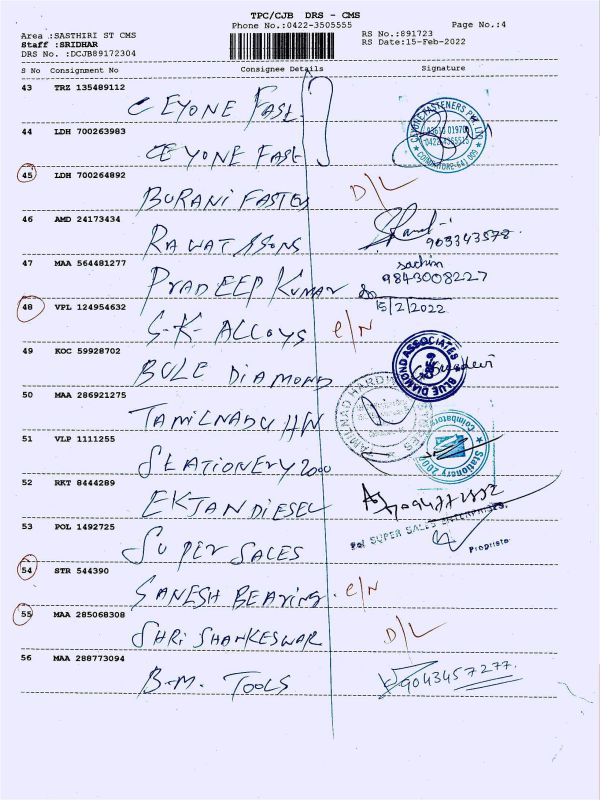 TPC/CJB DRS - CMS
Phone No.:0422-3505555 Page No.:4
Area :SASTHIRI ST CMS RS No.:891723
Staff :SRIDHAR RS Date:15-Feb-2022
DRS No. :DCJB89172304
S No Consignment No Consignee Details Signature
43 TRZ 135489112
CEYONE FAST
44 LDH 700263983
CEYONE FAST
45 LDH 700264892
BURANI FASTEN D/L
46 AMD 24173434
RAWAT & SONS 903343578.
47 MAA 564481277
PRADEEP KUMAR sachin
9843008227
15/2/2022
48 VPL 124954632
S-K- ALLOYS C/N
49 KOC 59928702
BULE DIAMOND BLUE DIAMOND ASSOCIATES
50 MAA 286921275
TAMILNADU H/W
51 VLP 1111255
STATIONERY 2000 Stationery 2000
52 RKT 8444289
EKTAN DIESEL
53 POL 1492725
SUPER SALES For SUPER SALES ENTERPRISES.
Proprietor
54 STR 544390
SANESH BEARING. C/N
55 MAA 285068308
SHRI SHANKESWAR D/L
56 MAA 288773094
B-M. TOOLS 9043457277.